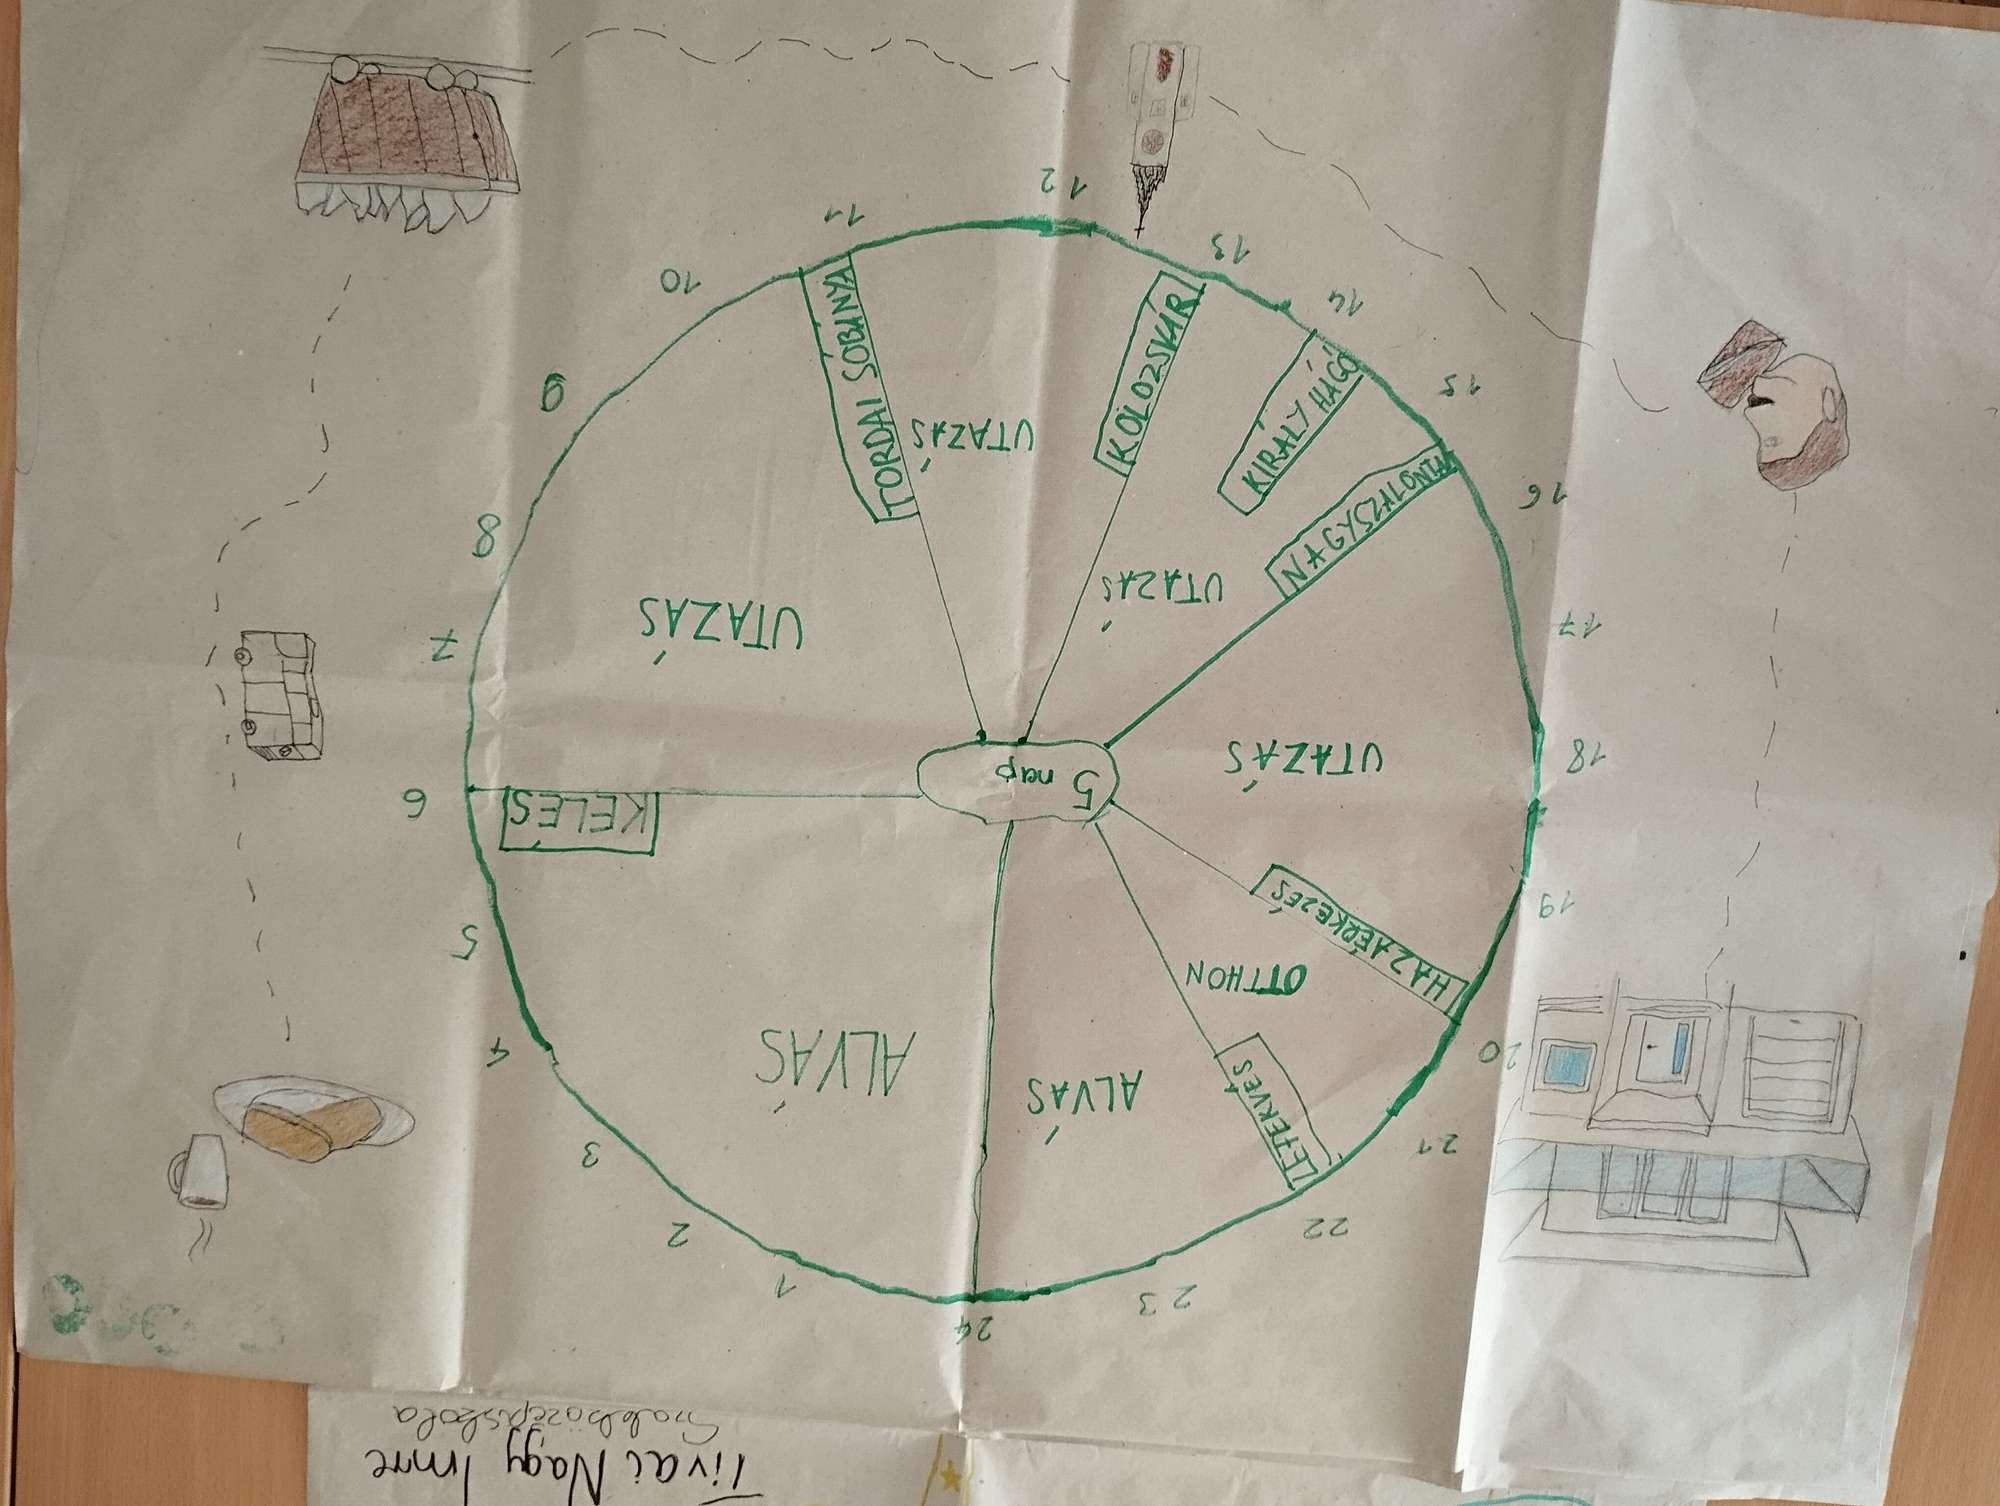 Tivai Nagy Imre
Szakközépiskola
24
1
2
3
4
5
6
7
8
9
10
11
12
13
14
15
16
17
18
19
20
21
22
23
5 nap
ALVÁS
KELÉS
UTAZÁS
TORDAI SÓBÁNYA
UTAZÁS
KOLOZSVÁR
UTAZÁS
KIRÁLY HÁGÓ
NAGYSZALONTA
UTAZÁS
HAZAÉRKEZÉS
OTTHON
LEFEKVÉS
ALVÁS